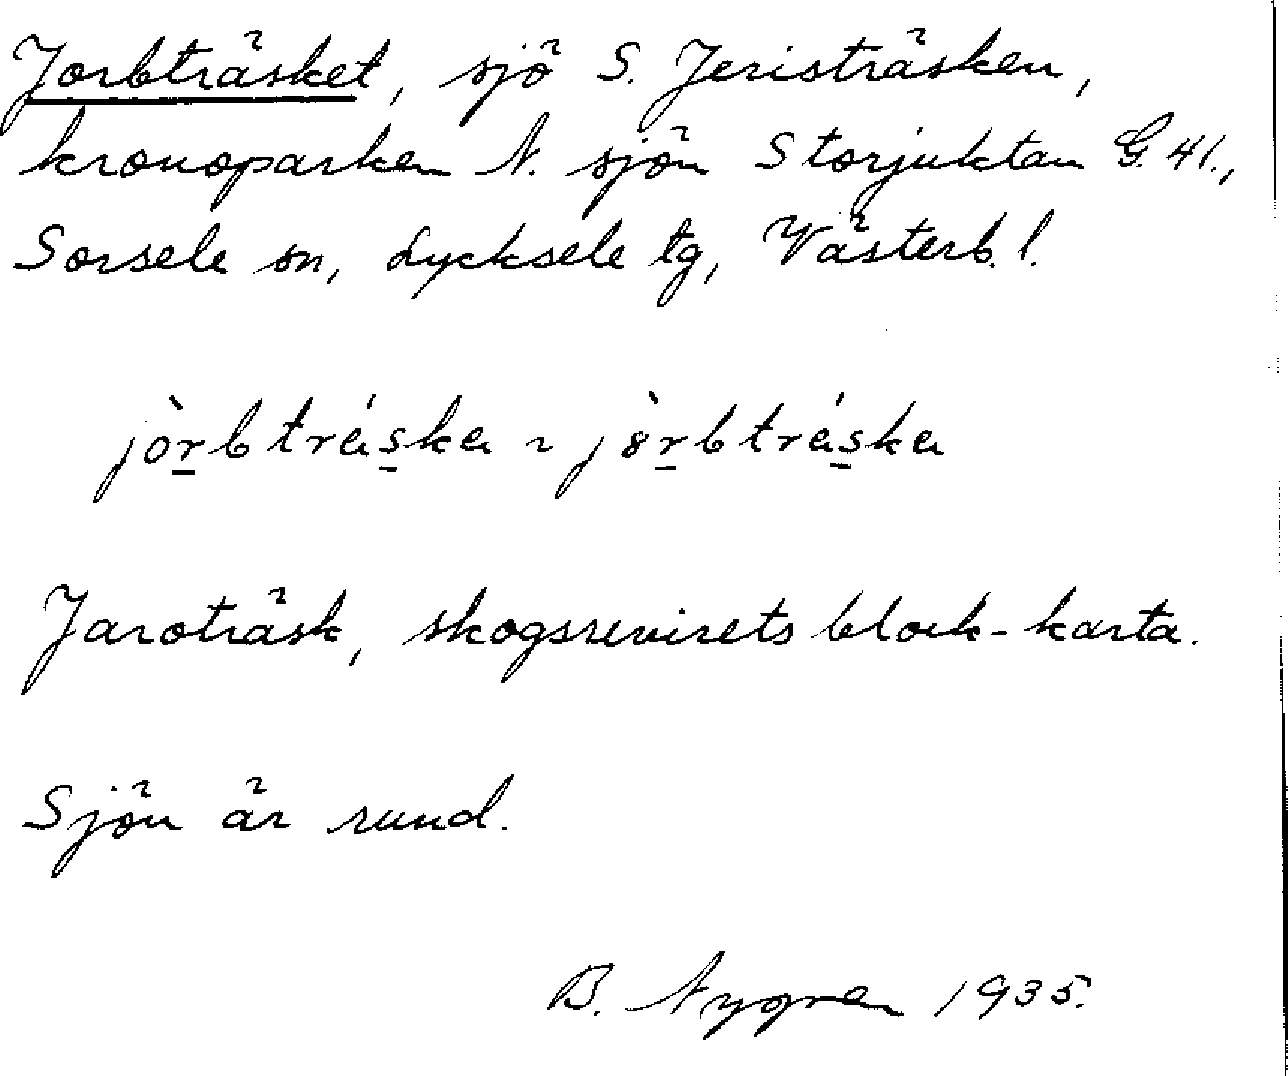 Jorbträsket, sjö S. Jeristräsken,
kronoparken N. sjön Storjuktan G. 41.,
Sorsele sn, Lycksele tg, Västerb. l.
jòrbträ́ska ~ jòrbträ́ska
Jaroträsk, skogsrevirets block-karta.
Sjön är rund.
B. Nygren 1935.